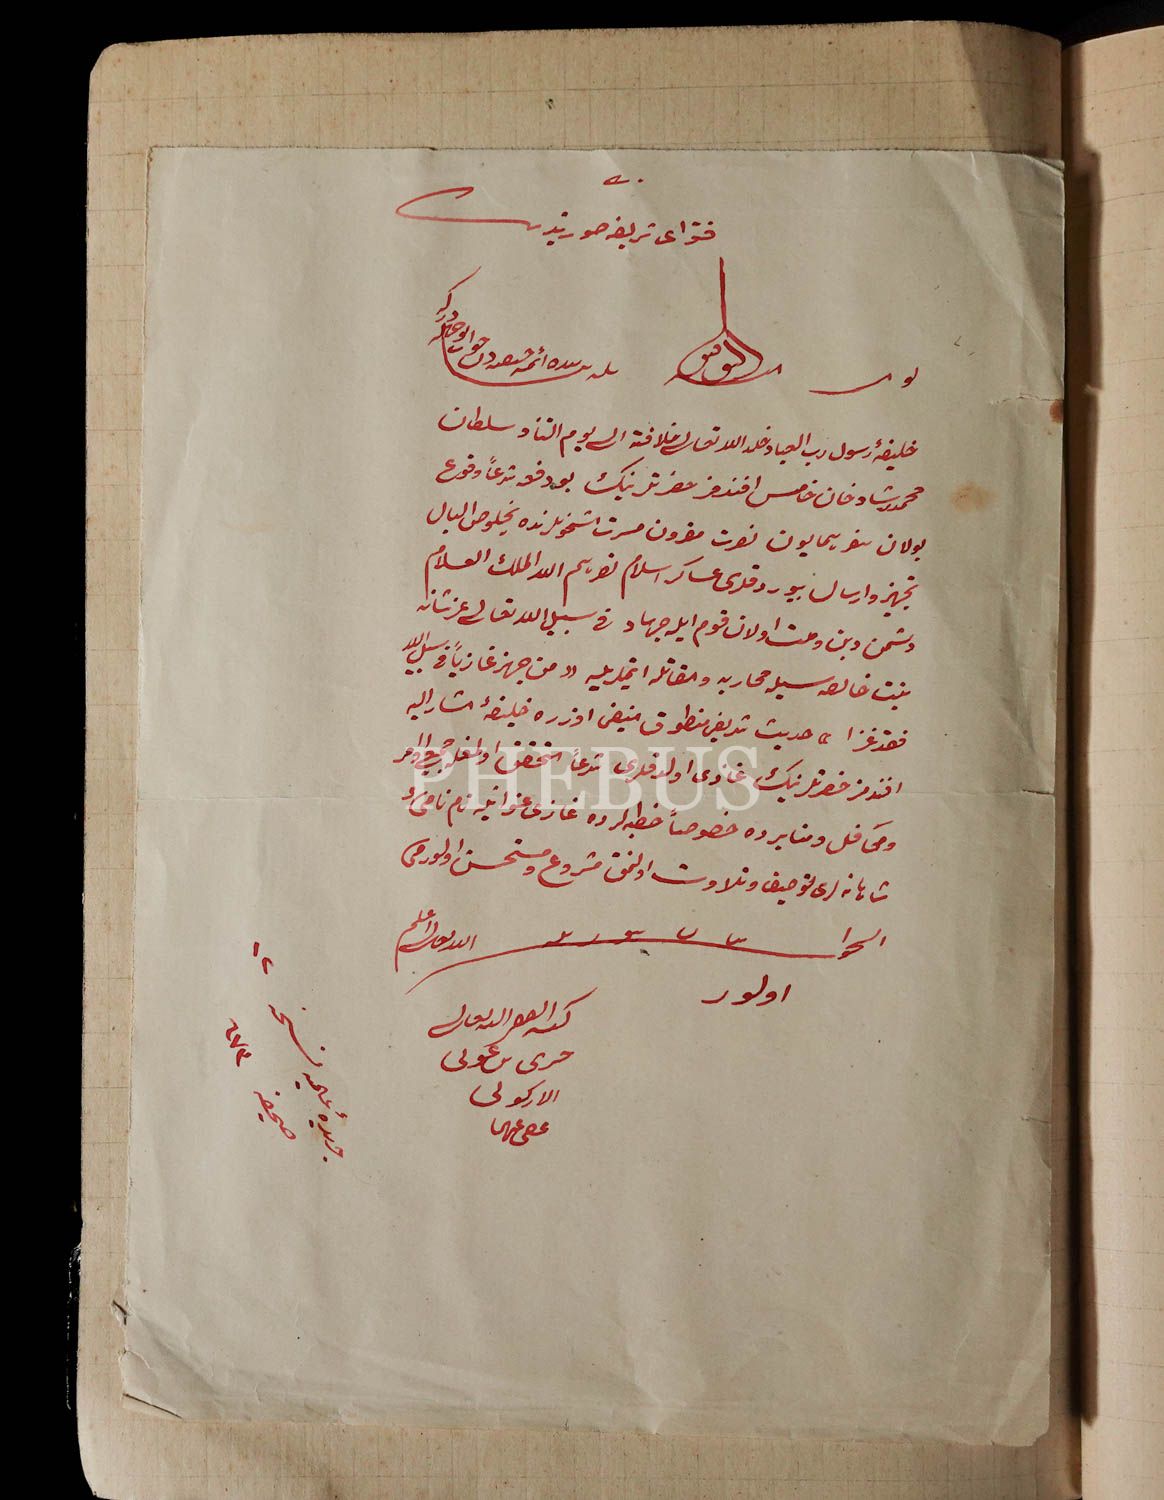 فتوای شریفه صورتیدر
التوفیق
بو مسئله بیاننده ائمهٔ حنفیه‌دن جواب بو وجهله در که
خلیفهٔ رسول رب العباد خلد الله تعالی خلافته الی یوم التناد سلطان
محمد رشاد خان خامس افندمز حضرتلرینک بو دفعه شرعاً وقوع
بولان سفر همایون نصرت مقرون مسرت مشحونلرنده خلوص البال
تجهیز و ارسال بیوردقلری عساکر اسلام نصرهم الله الملک العلام
دشمن دین و ملت اولان قوم ایله جهاد فی سبیل الله تعالی عز شانه
نیت خالصه‌سیله محاربه و مقاتله ایتملریله « من جهز غازیاً فی سبیل الله
فقد غزا » حدیث شریفی منطوق منیفی اوزره خلیفهٔ مشار الیه
افندمز حضرتلرینک غازی اولدقلری شرعاً متحقق اولمغله جمع
ومحافل و منابرده خصوصاً خطبه‌لرده غازی عنوانیله نام نامیء
شاهانه‌لری توصیف و تلاوت اولنمق مشروع و مستحسن اولورمی
الجواب الله تعالی اعلم
اولور
کتبه الفقیر الیه تعالی
خیری بن عونی
الارکوبی
عفی عنهما
جریدهٔ علمیه نسخه ١٢
صحیفه ٦٧٢
PHEBUS